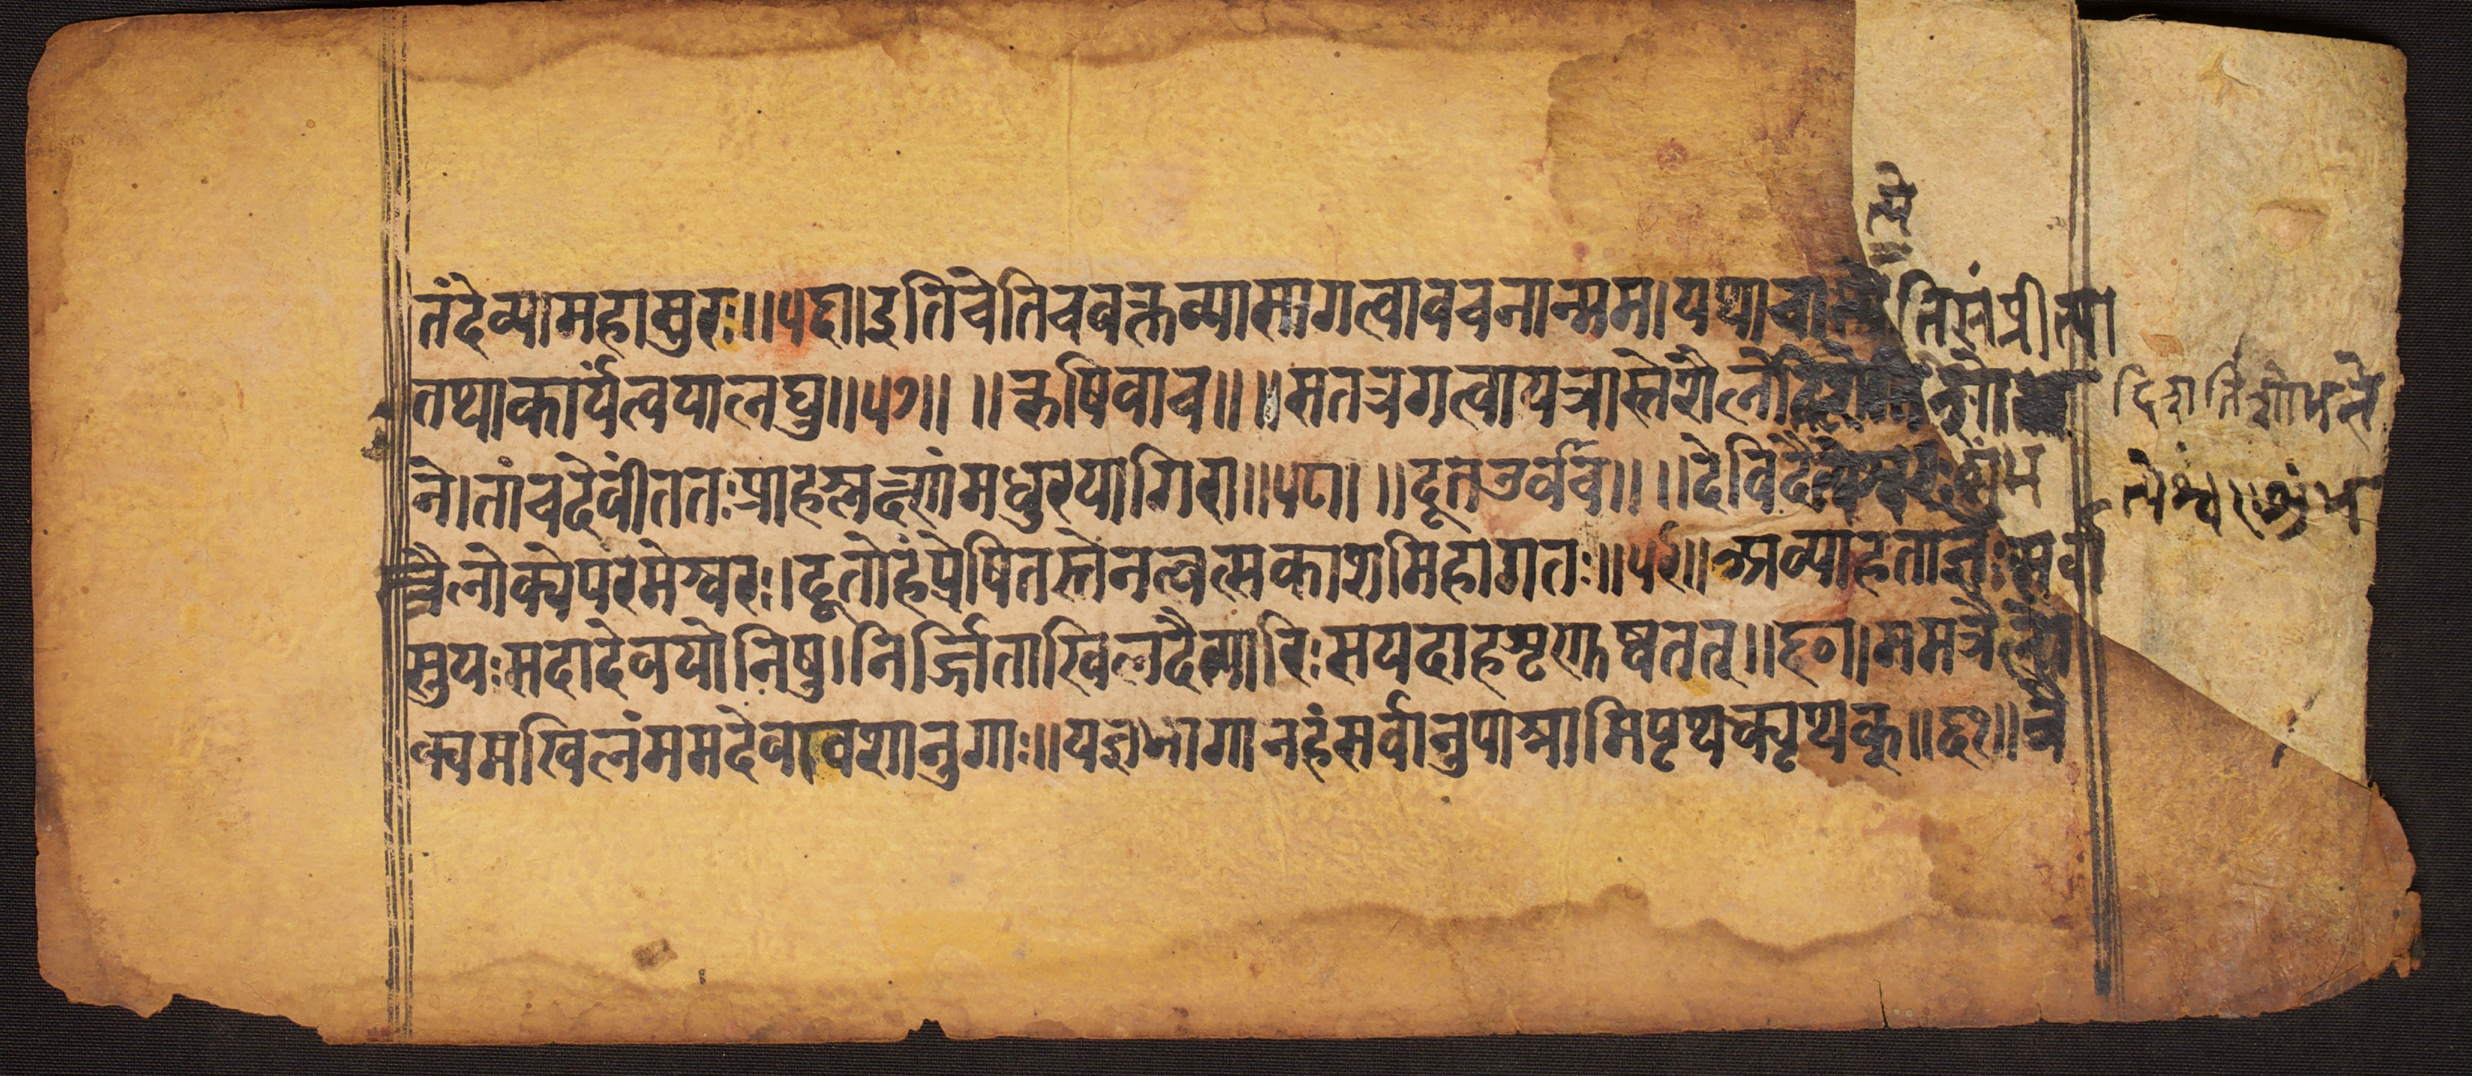 तं देव्या महासुरः॥५६॥ इति चेति च वक्तव्या सा गत्वा वचनान्मम। यथा चाभ्येति संप्रीत्या
तथा कार्यं त्वया लघु॥५७॥ ॥ऋषिवाच॥ ॥स तत्र गत्वा यत्रास्ते शैलो
ने। तां च देवीं ततः प्राह श्लक्ष्णं मधुरया गिरा॥५८॥ ॥दूत उवाच॥ ॥देवि दैत्येश्वरः शुंभ
त्रैलोक्ये परमेश्वरः। दूतोहं प्रेषितस्तेन त्वत्सकाशमिहागतः॥५९॥ अव्याहताज्ञः सर्वा
सु यः सदा देवयोनिषु। निर्जिताखिलदैत्यारिः स यदाह शृणुष्व तत्॥६०॥ मम त्रैलो
क्यमखिलं मम देवा वशानुगाः॥ यज्ञभागानहं सर्वानुपाश्नामि पृथक्पृथक्॥६१॥ त्रै